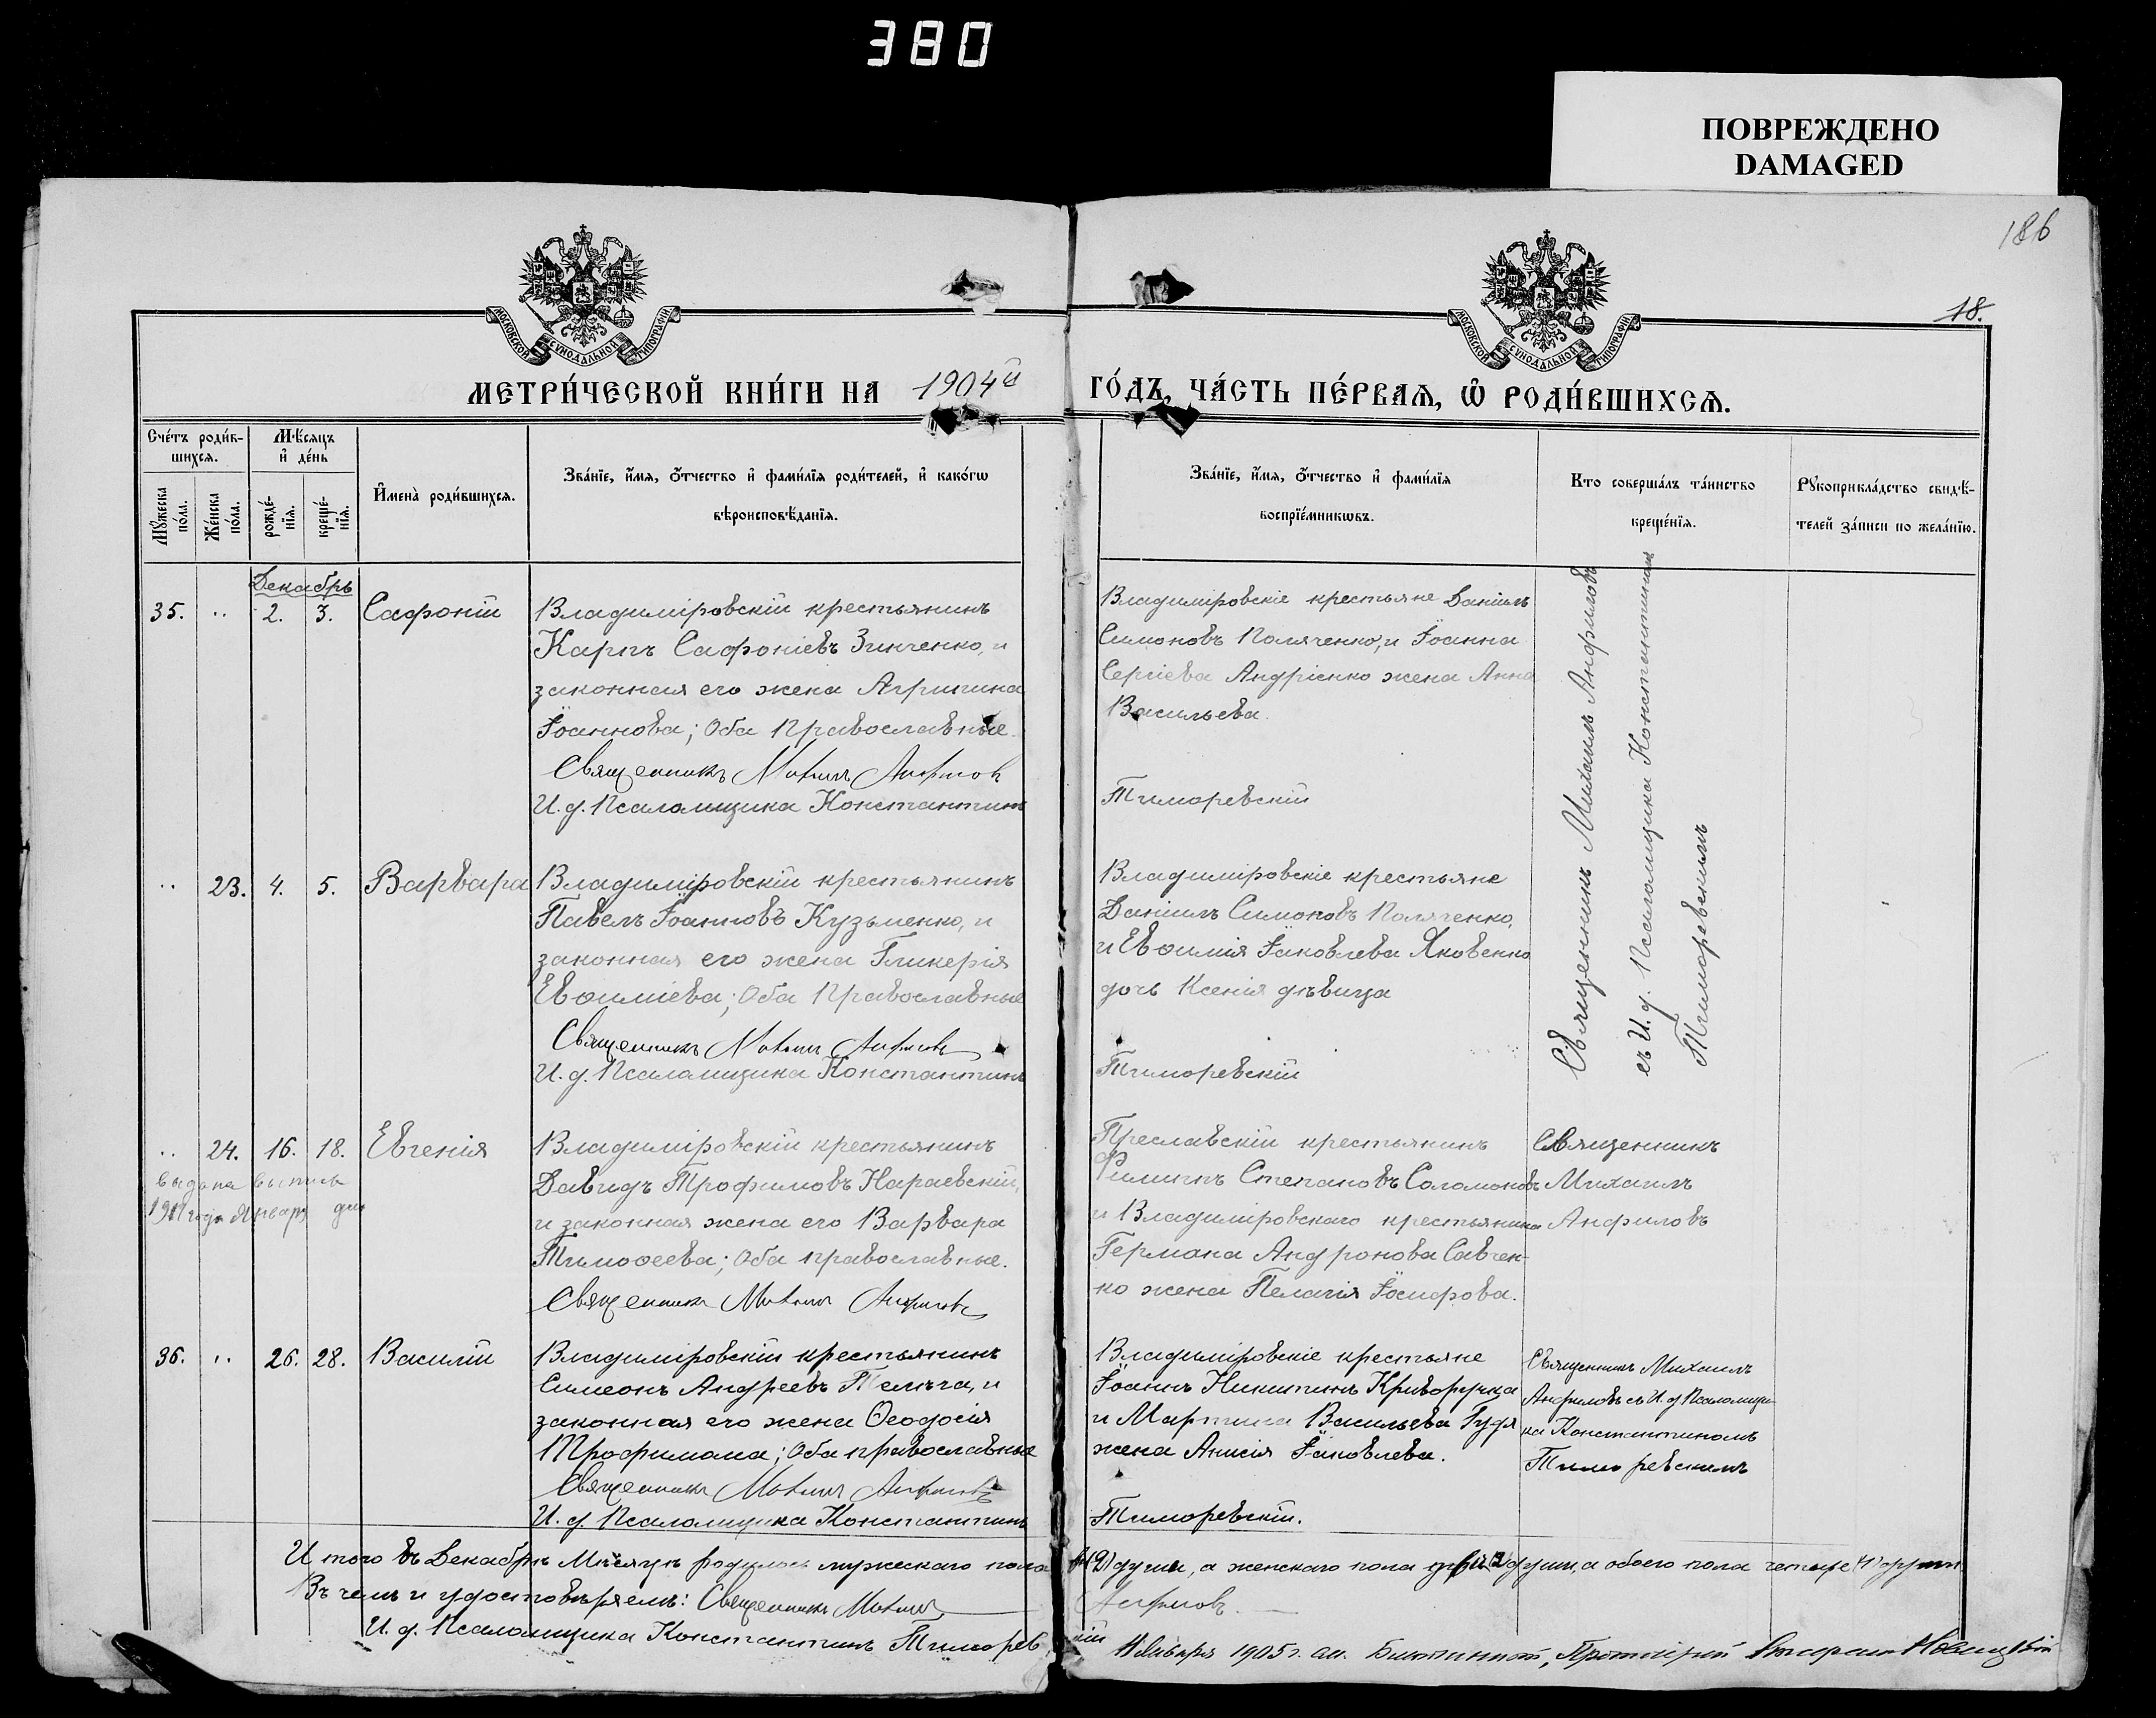 380
ПОВРЕЖДЕНО
DAMAGED
186
18.
МОСКОВСКОЙ СѴНОДАЛЬНОЙ ТИПОГРАФІИ
МОСКОВСКОЙ СѴНОДАЛЬНОЙ ТИПОГРАФІИ
МЕТРИ́ЧЕСКОЙ КНИ́ГИ НА 1904й ГО́ДЪ, ЧА́СТЬ ПЕ́РВАѦ, Ѡ҆ РОДИ́ВШИХСѦ.
Сче́тъ роди́в-
шихсѧ.
Мꙋжеска по́ла.
Же́нска по́ла.
Мѣ́сѧцъ
и҆ де́нь
рожде́-
нїѧ.
креще́-
нїѧ.
И҆мена̀ роди́вшихсѧ.
Зва́нїе, и҆́мѧ, ѻ҆́тчество и҆ фами́лїѧ роди́телей, и҆ како́гѡ
вѣроисповѣ́данїѧ.
Зва́нїе, и҆́мѧ, ѻ҆́тчество и҆ фами́лїѧ
воспрїе́мникѡвъ.
Кто соверша́лъ та́инство
креще́нїѧ.
Рꙋкоприкла́дство свидѣ́-
телей за́писи по жела́нїю.
Декабрь
35. .. 2. 3. Сафоній
Владиміровскій крестьянинъ
Карпъ Сафоніевъ Зинченко, и
законная его жена Агрипина
Іоаннова; Оба Православные.
Священникъ Михаилъ Анфиловъ
И. д. Псаломщика Константинъ
Владиміровскіе крестьяне Даніилъ
Симоновъ Поляченко, и Іоанна
Сергіева Андріенко жена Анна
Васильева.
Тиморевскій
Священникъ Михаилъ Анфиловъ
съ И. д. Псаломщика Константиномъ
Тиморевскимъ
.. 23. 4. 5. Варвара
Владиміровскій крестьянинъ
Павелъ Іоанновъ Кузьменко, и
законная его жена Гликерія
Евѳиміева; Оба Православные
Священникъ Михаилъ Анфиловъ
И. д. Псаломщика Константинъ
Владиміровскіе крестьяне
Даніилъ Симоновъ Поляченко,
и Евѳимія Іаковлева Яковенко
дочь Ксенія дѣвица
Тиморевскій
.. 24. 16. 18. Евгенія
выдана выпись
года Января дня
Владиміровскій крестьянинъ
Давидъ Трофимовъ Караевскій,
и законная жена его Варвара
Тимоѳеева; Оба православные.
Священникъ Михаилъ Анфиловъ
Преславскій крестьянинъ
Филиппъ Степановъ Соломоновъ
и Владиміровскаго крестьянина
Германа Андронова Савчен-
ко жена Пелагія Іосифова.
Священникъ
Михаилъ
Анфиловъ
36. .. 26. 28. Василій
Владиміровскій крестьянинъ
Симеонъ Андреевъ Телѣга, и
законная его жена Ѳеодосія
Оба православные
Священникъ Михаилъ Анфиловъ
И. д. Псаломщика Константинъ
Владиміровскіе крестьяне
Іоаннъ Никитинъ Криворучка
и Мартина Васильева Гудя
жена Анисія Іаковлева.
Тиморевскій.
Священникъ Михаилъ
Анфиловъ съ И. д. Псаломщи-
ка Константиномъ
Тиморевскимъ
Итого въ Декабрѣ Мѣсяцѣ родилось мужескаго пола (2) души, а женскаго пола (2) души, а обоего пола четыре (4) души.
Въ чемъ и удостовѣряемъ: Священникъ Михаилъ Анфиловъ
И. д. Псаломщика Константинъ Тиморевскій
Января 1905 г. Протоіерей Новицкій